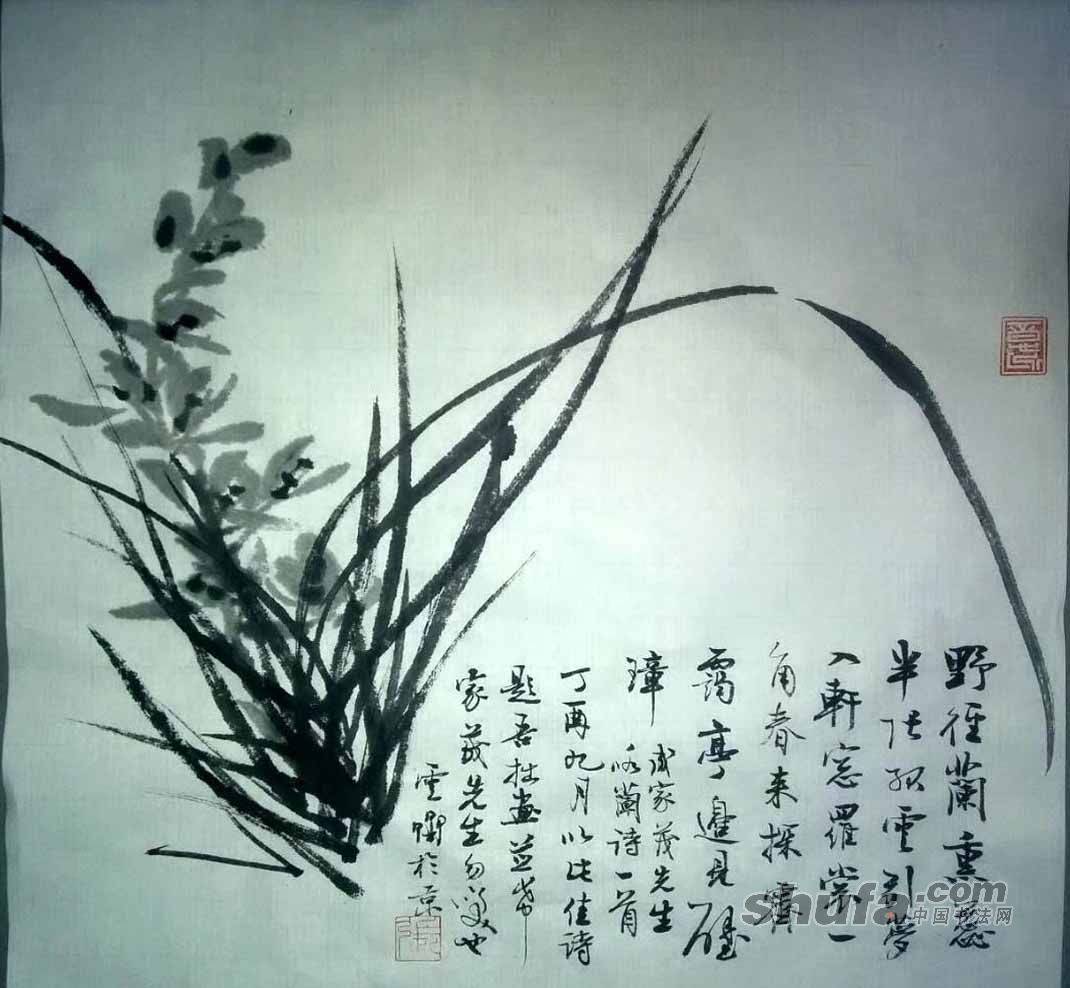 野徑蘭熏蕊
半張孤雲引夢
入軒窓羅裳一
角春来探霽
靄亭邊見璧
璋
盛家茂先生
咏蘭詩一首
丁酉九月以此佳詩
題吾拙畫並希
家茂先生勿笑也
雲 於京
shufa.com
中国书法网